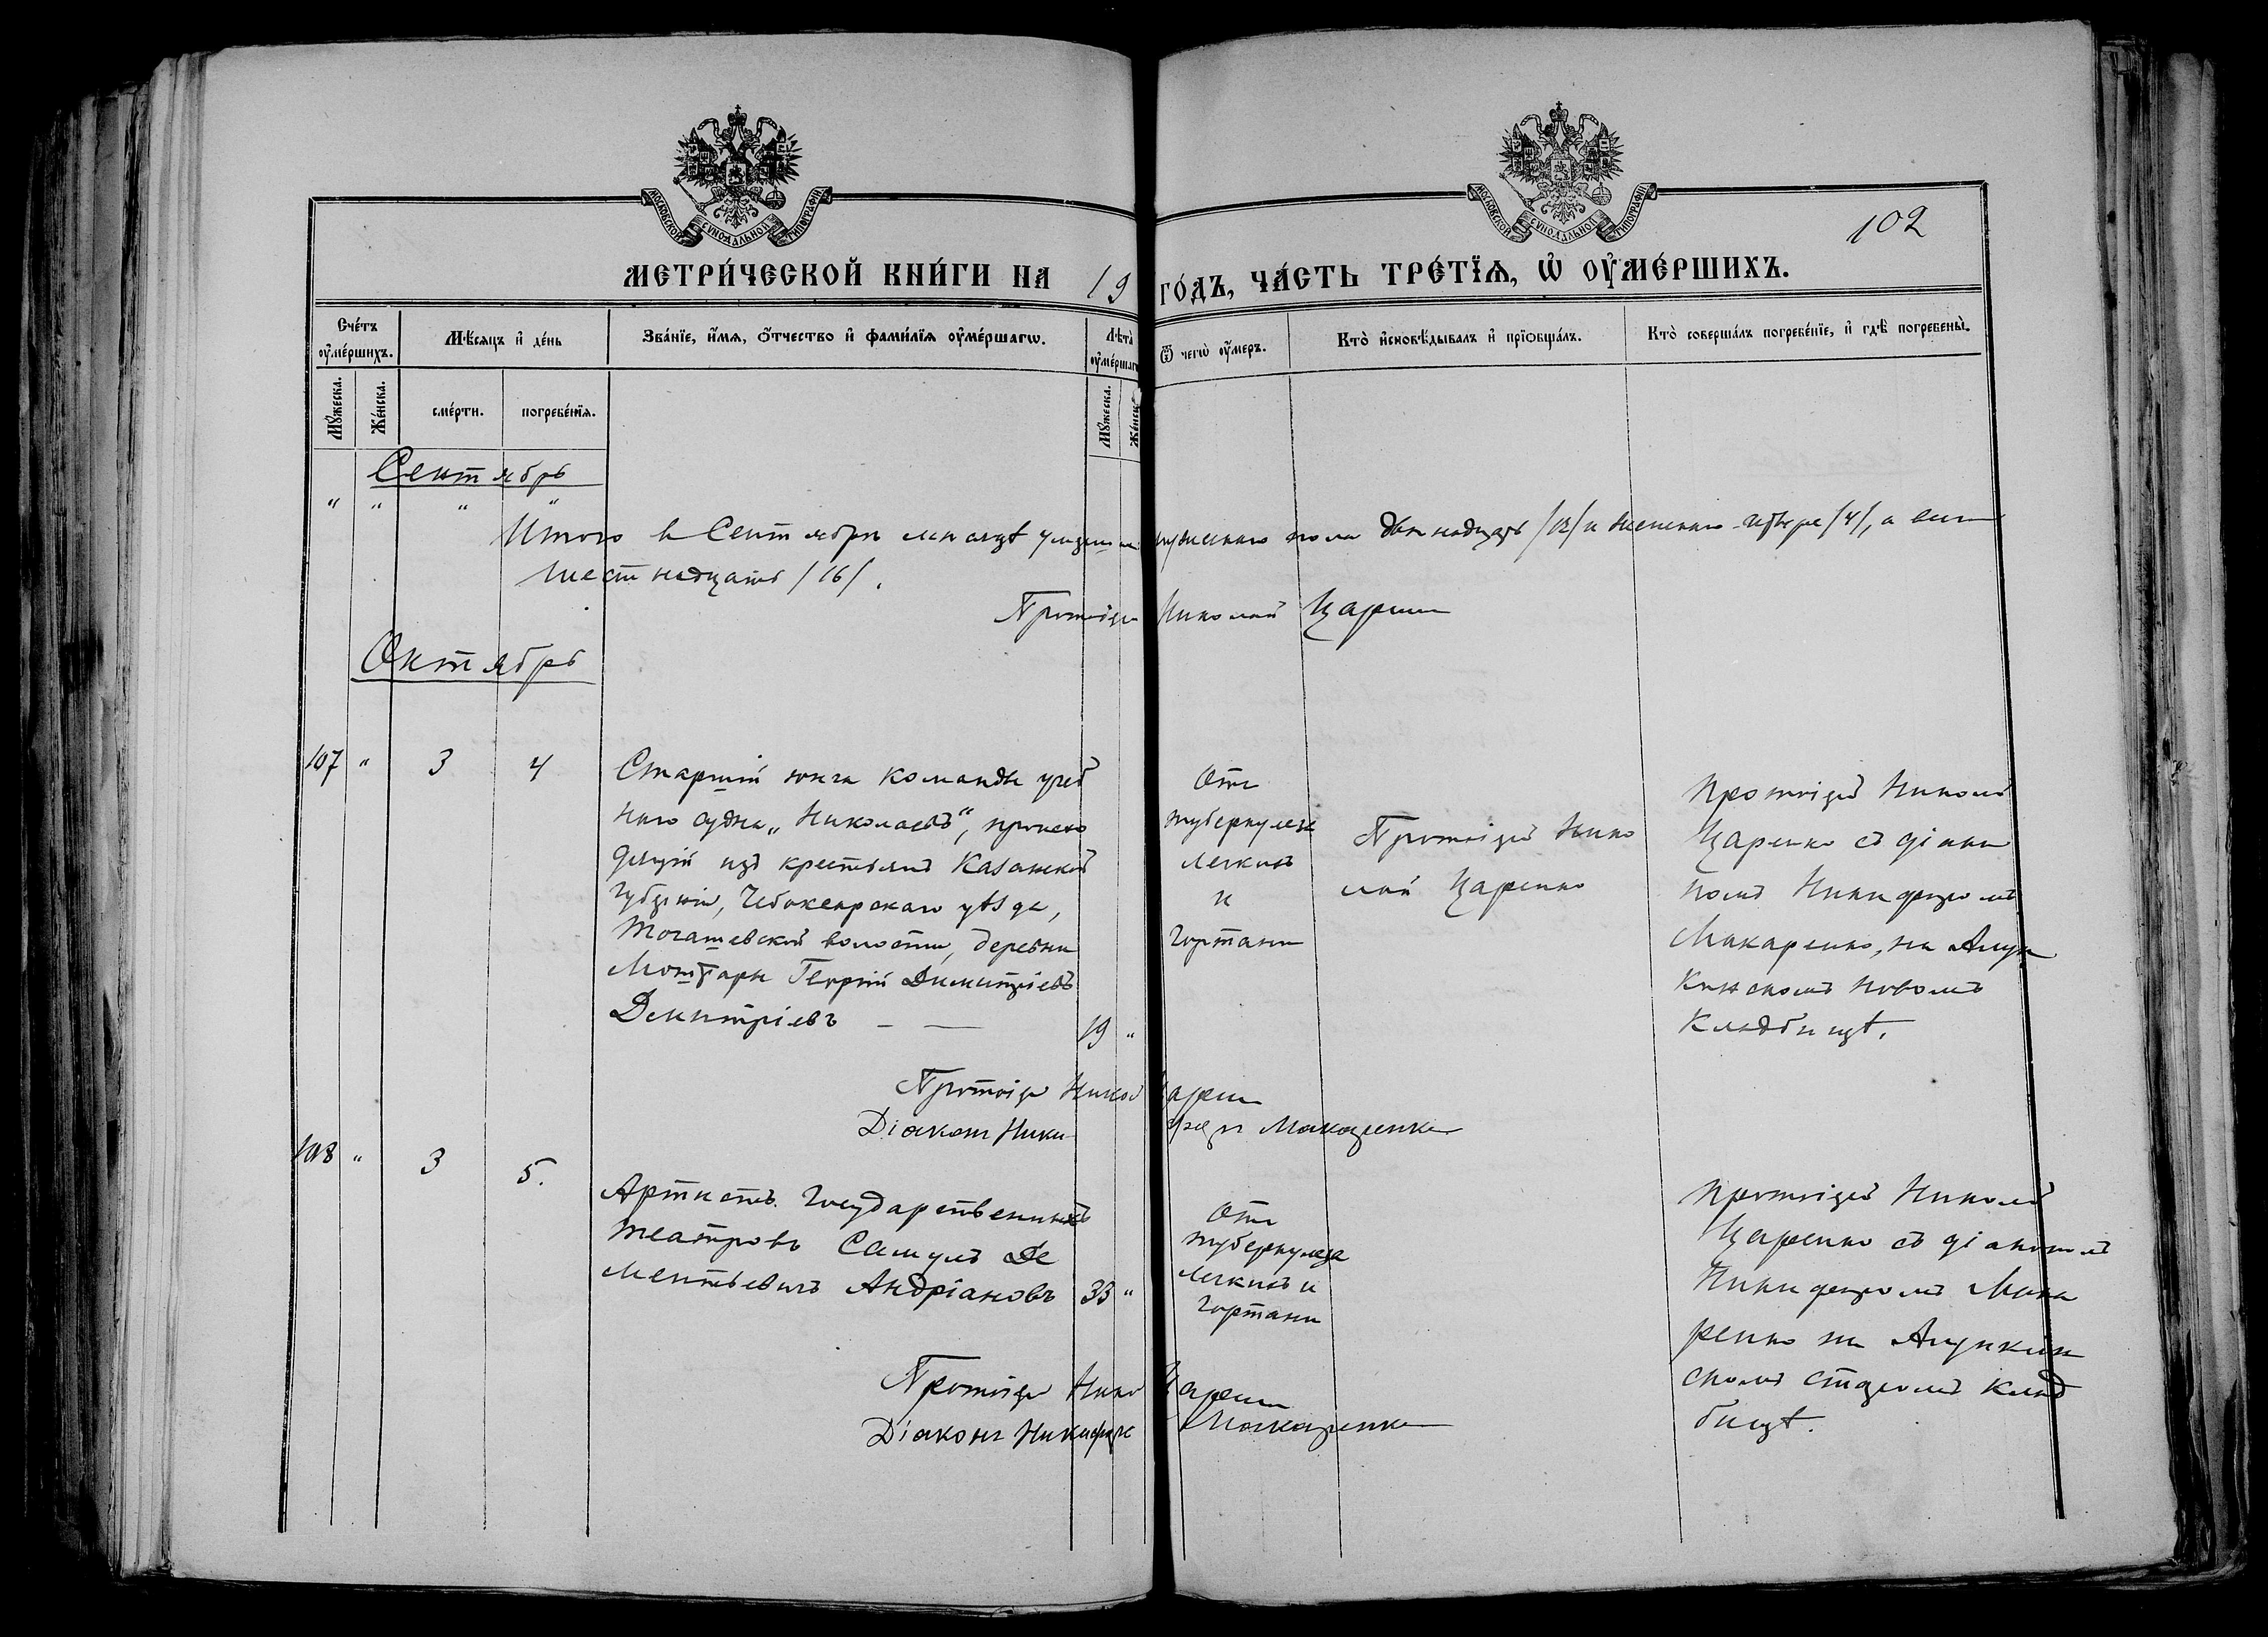 МОСКОВСКОЙ СѴНОДАЛЬНОЙ ТИПОГРАФІИ
МОСКОВСКОЙ СѴНОДАЛЬНОЙ ТИПОГРАФІИ
102
МЕТРИ́ЧЕСКОЙ КНИ́ГИ НА 19 ГО́ДЪ, ЧА́СТЬ ТРЕ́ТЇѦ, Ѡ ОУ҆МЕ́РШИХЪ.
Сче́тъ оу҆ме́ршихъ.
Мѣ́сяцъ и҆ де́нь
Зва́нїе, и҆́мѧ, ѻ҆́тчество и҆ фами́лїѧ оу҆ме́ршагѡ.
Лѣта̀ оу҆ме́ршагѡ
Ѿ чегѡ̀ оу҆́меръ.
Кто̀ и҆сповѣ́дывалъ и҆ прїѡбща́лъ.
Кто̀ соверша́лъ погребе́нїе, и҆ гдѣ̀ погребены̀.
Мꙋ́жеска.
Же́нска.
сме́рти.
погребе́нїѧ.
Мꙋ́жеска.
Же́нска
Сентябрь
" " " "
Итого в Сентябрѣ мѣсяцѣ умерло мужескаго пола двѣнадцать /12/ и женскаго четыре /4/, а всего
шестнадцать /16/.
Протоіерей Николай Царенко
Октябрь
107 " 3 4
Старшій юнга команды учеб
наго судна „Николаевъ", происхо
дящій изъ крестьянъ Казанской
губерніи, Чебоксарскаго уѣзда,
Тогашевской волости, деревни
Георгій Димитріевъ
Димитріевъ — — 19 "
Отъ
туберкулеза
легкихъ
и
гортани
Протоіерей Нико
лай Царенко
Протоіерей Николай
Царенко съ діако
номъ Никифоромъ
Макаренко, на
кинскомъ новомъ
кладбищѣ.
Протоіерей Никол Царенко
Діаконъ Никифоръ Макаренко
108 " 3 5.
Артистъ Государственныхъ
театровъ Самуилъ Де
ментьевичъ Андріановъ 33 "
Отъ
туберкулеза
легкихъ и
гортани
Протоіерей Николай
Царенко съ діакономъ
Никифоромъ Мака
ренко на
скомъ старомъ клад
бищѣ.
Протоіерей Нико Царенко
Діаконъ Никифоръ Макаренко